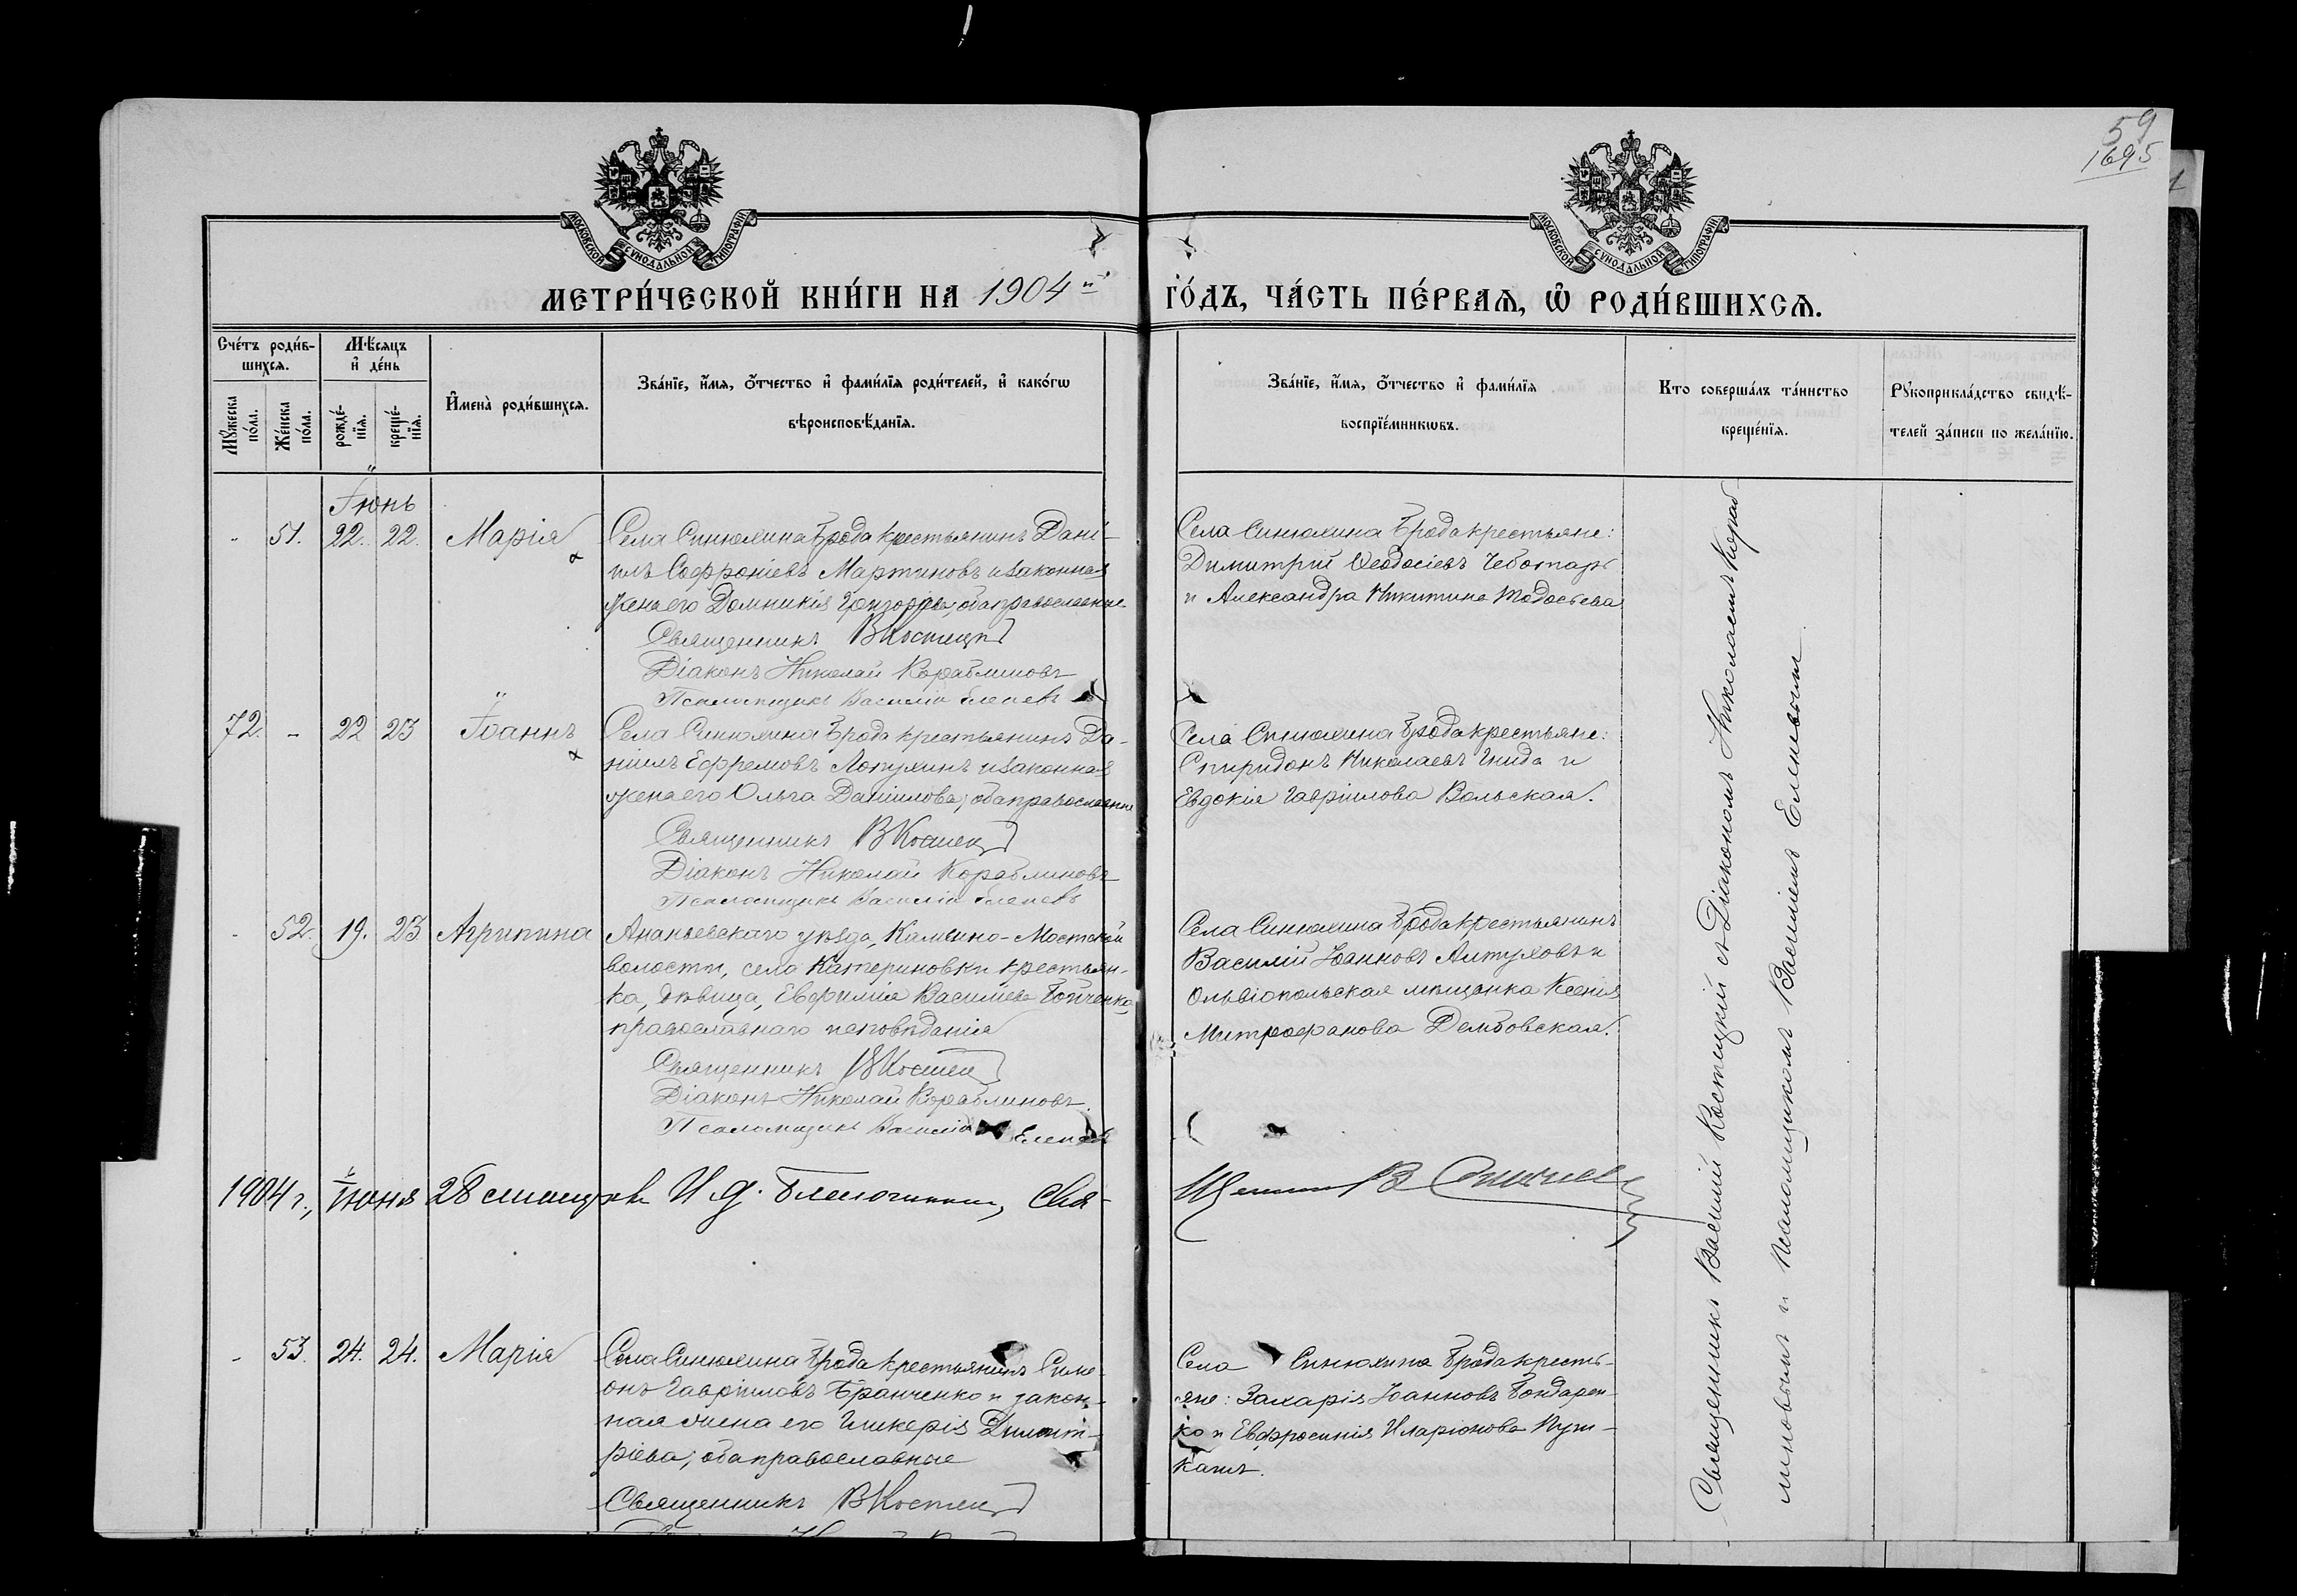 59
1695
МОСКОВСКОЙ СѴНОДАЛЬНОЙ ТИПОГРАФІИ
МОСКОВСКОЙ СѴНОДАЛЬНОЙ ТИПОГРАФІИ
МЕТРИ́ЧЕСКОЙ КНИ́ГИ НА 1904й ГО́ДЪ, ЧА́СТЬ ПЕ́РВАЯ, Ѡ РОДИ́ВШИХСЯ.
Сче́тъ роди́в-
шихся.
Мꙋ́жеска по́ла.
Же́нска по́ла.
Мѣ́сяцъ
и де́нь
рожде́-
нїя.
креще́-
нїя.
И҆мена̀ роди́вшихся.
Зва́нїе, и҆́мя, ѻ҆́тчество и҆ фами́лїя роди́телей, и҆ како́гѡ
вѣроисповѣ́данїя.
Зва́нїе, и҆́мя, ѻ҆́тчество и҆ фами́лїя
воспрїе́мникѡвъ.
Кто соверша́лъ та́инство
креще́нїя.
Рꙋкоприкла́дство свидѣ́-
телей за́писи по жела́нїю.
Іюнь
- 51. 22. 22. Марія
Села Синюхина Брода крестьянинъ Дані-
илъ Софроніевъ Мартиновъ и законная
жена его Домникія Григорьева, оба православные
Священникъ В Костецкій
Діаконъ Николай Кораблиновъ
Псаломщикъ Василій Еленевъ
Села Синюхина Брода крестьяне:
Димитрій Ѳеодосіевъ Чеботарь
и Александра Никитина Тодосьева
72. - 22 23 Іоаннъ
Села Синюхина Брода крестьянинъ Да-
ніилъ Ефремовъ Лопухинъ и законная
жена его Ольга Даніилова, оба православные
Священникъ В Костецкій
Діаконъ Николай Кораблиновъ
Псаломщикъ Василій Еленевъ
Села Синюхина Брода крестьяне:
Спиридонъ Николаевъ Гнида и
Евдокія Гавріилова Вольская.
- 52. 19. 23 Агрипина
Ананьевскаго уѣзда, Каменно-Мостской
волости, села Катериновки крестьян-
ка, дѣвица, Евфимія Василіева Бойченко
православнаго исповѣданія
Священникъ В Костецкій
Діаконъ Николай Кораблиновъ.
Псаломщикъ Василій Еленевъ
Села Синюхина Брода крестьянинъ
Василій Іоанновъ Алтуховъ и
Ольвіопольская мѣщанка Ксенія
Митрофанова Дембовская.
1904 г., Іюня 28 И. д. Благочиннаго, Свя-
щенникъ В
- 53. 24. 24. Марія
Села Синюхина Брода крестьянинъ Симе-
онъ Гавріиловъ Бранченко и закон-
ная жена его Гликерія Димит-
ріева, оба православные
Священникъ В Костецкій
Села Синюхина Брода кресть-
яне: Захарія Іоанновъ Бондарен-
ко и Евфросинія Иларіонова Пуш-
карь.
Священникъ Василій Костецкій съ Діакономъ Николаемъ Кораб-
линовымъ и Псаломщикомъ Василіемъ Еленевымъ